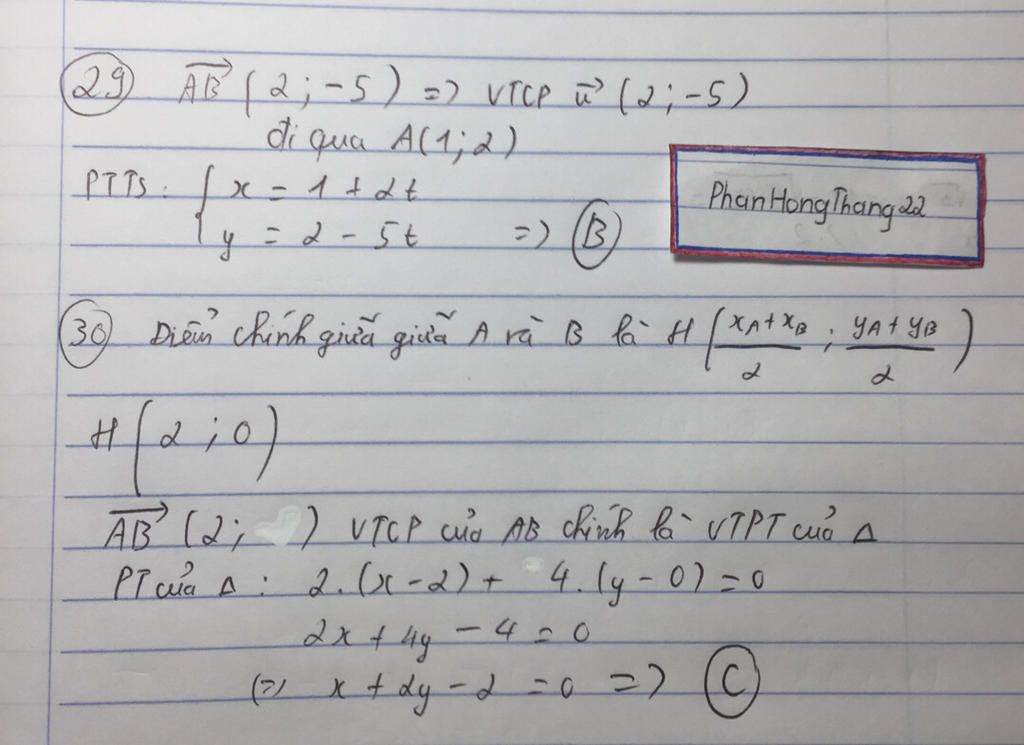 29 AB→ (2 ; -5) => VTCP u→ (2 ; -5)
đi qua A(1; 2)
PTTS : { x = 1 + 2t
y = 2 - 5t => B
PhanHongThang22
30 Điểm chính giữa giữa A và B là H ( (xA + xB)/2 ; (yA + yB)/2 )
H ( 2 ; 0 )
AB→ (2; ) VTCP của AB chính là VTPT của Δ
PT của Δ : 2.(x - 2) + 4.(y - 0) = 0
2x + 4y - 4 = 0
(=) x + 2y - 2 = 0 => C